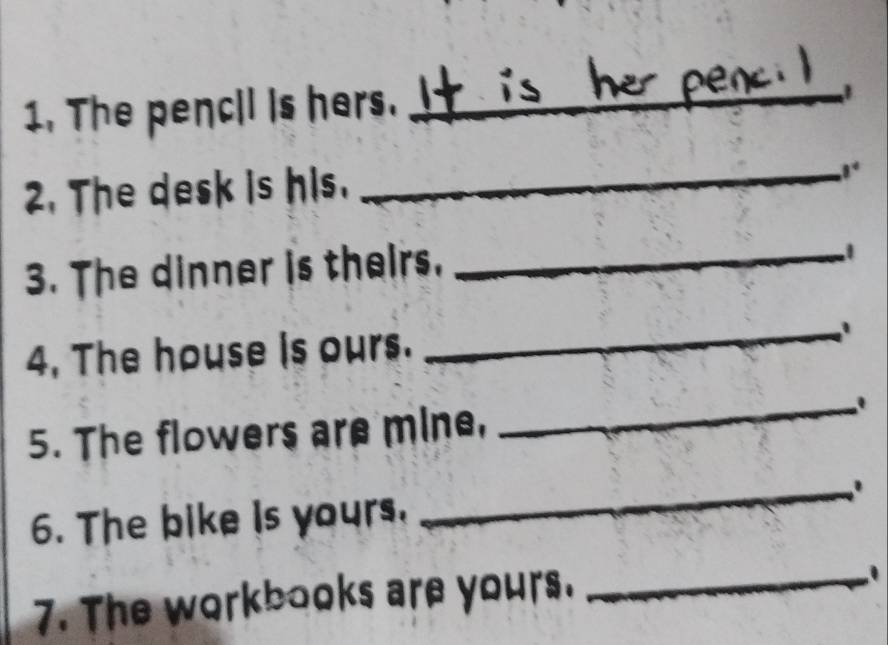 1. The pencil is hers. It is her pencil.
2. The desk is his. ____________.
3. The dinner is theirs. ____________.
4. The house is ours. ____________.
5. The flowers are mine. ____________.
6. The bike is yours. ____________.
7. The workbooks are yours. ____________.